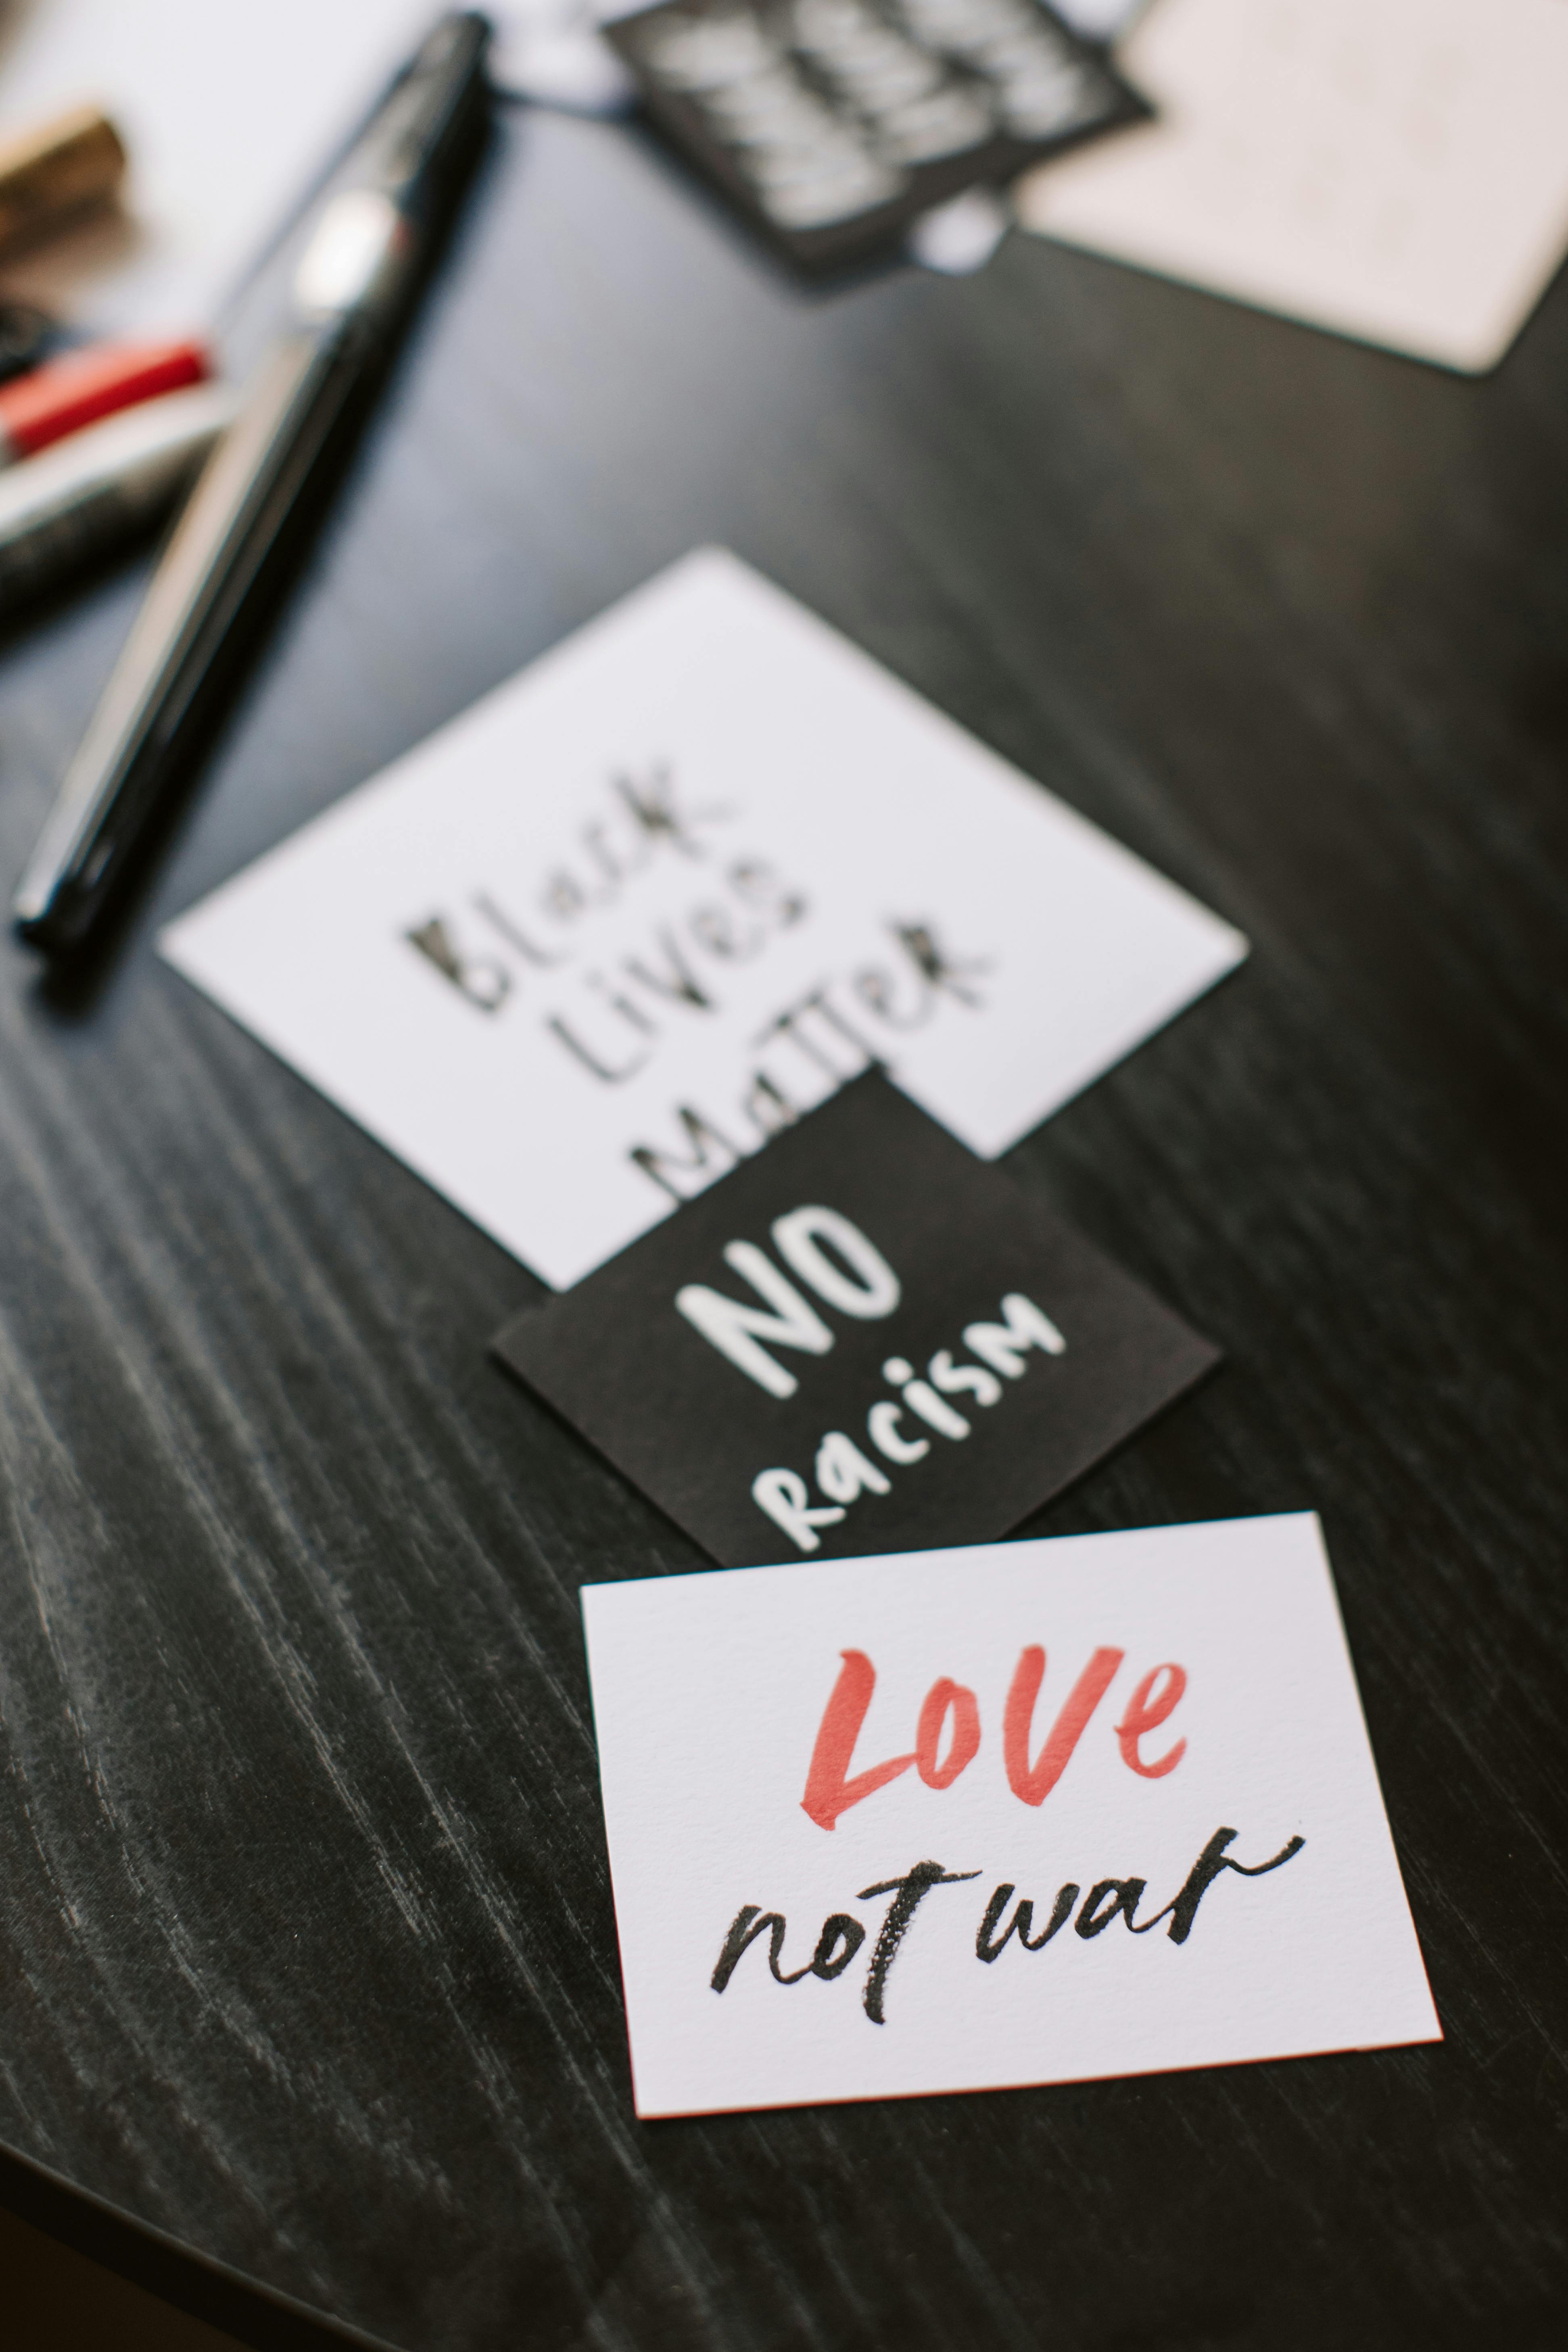 Black
Lives
Matter
NO
Racism
Love
not war